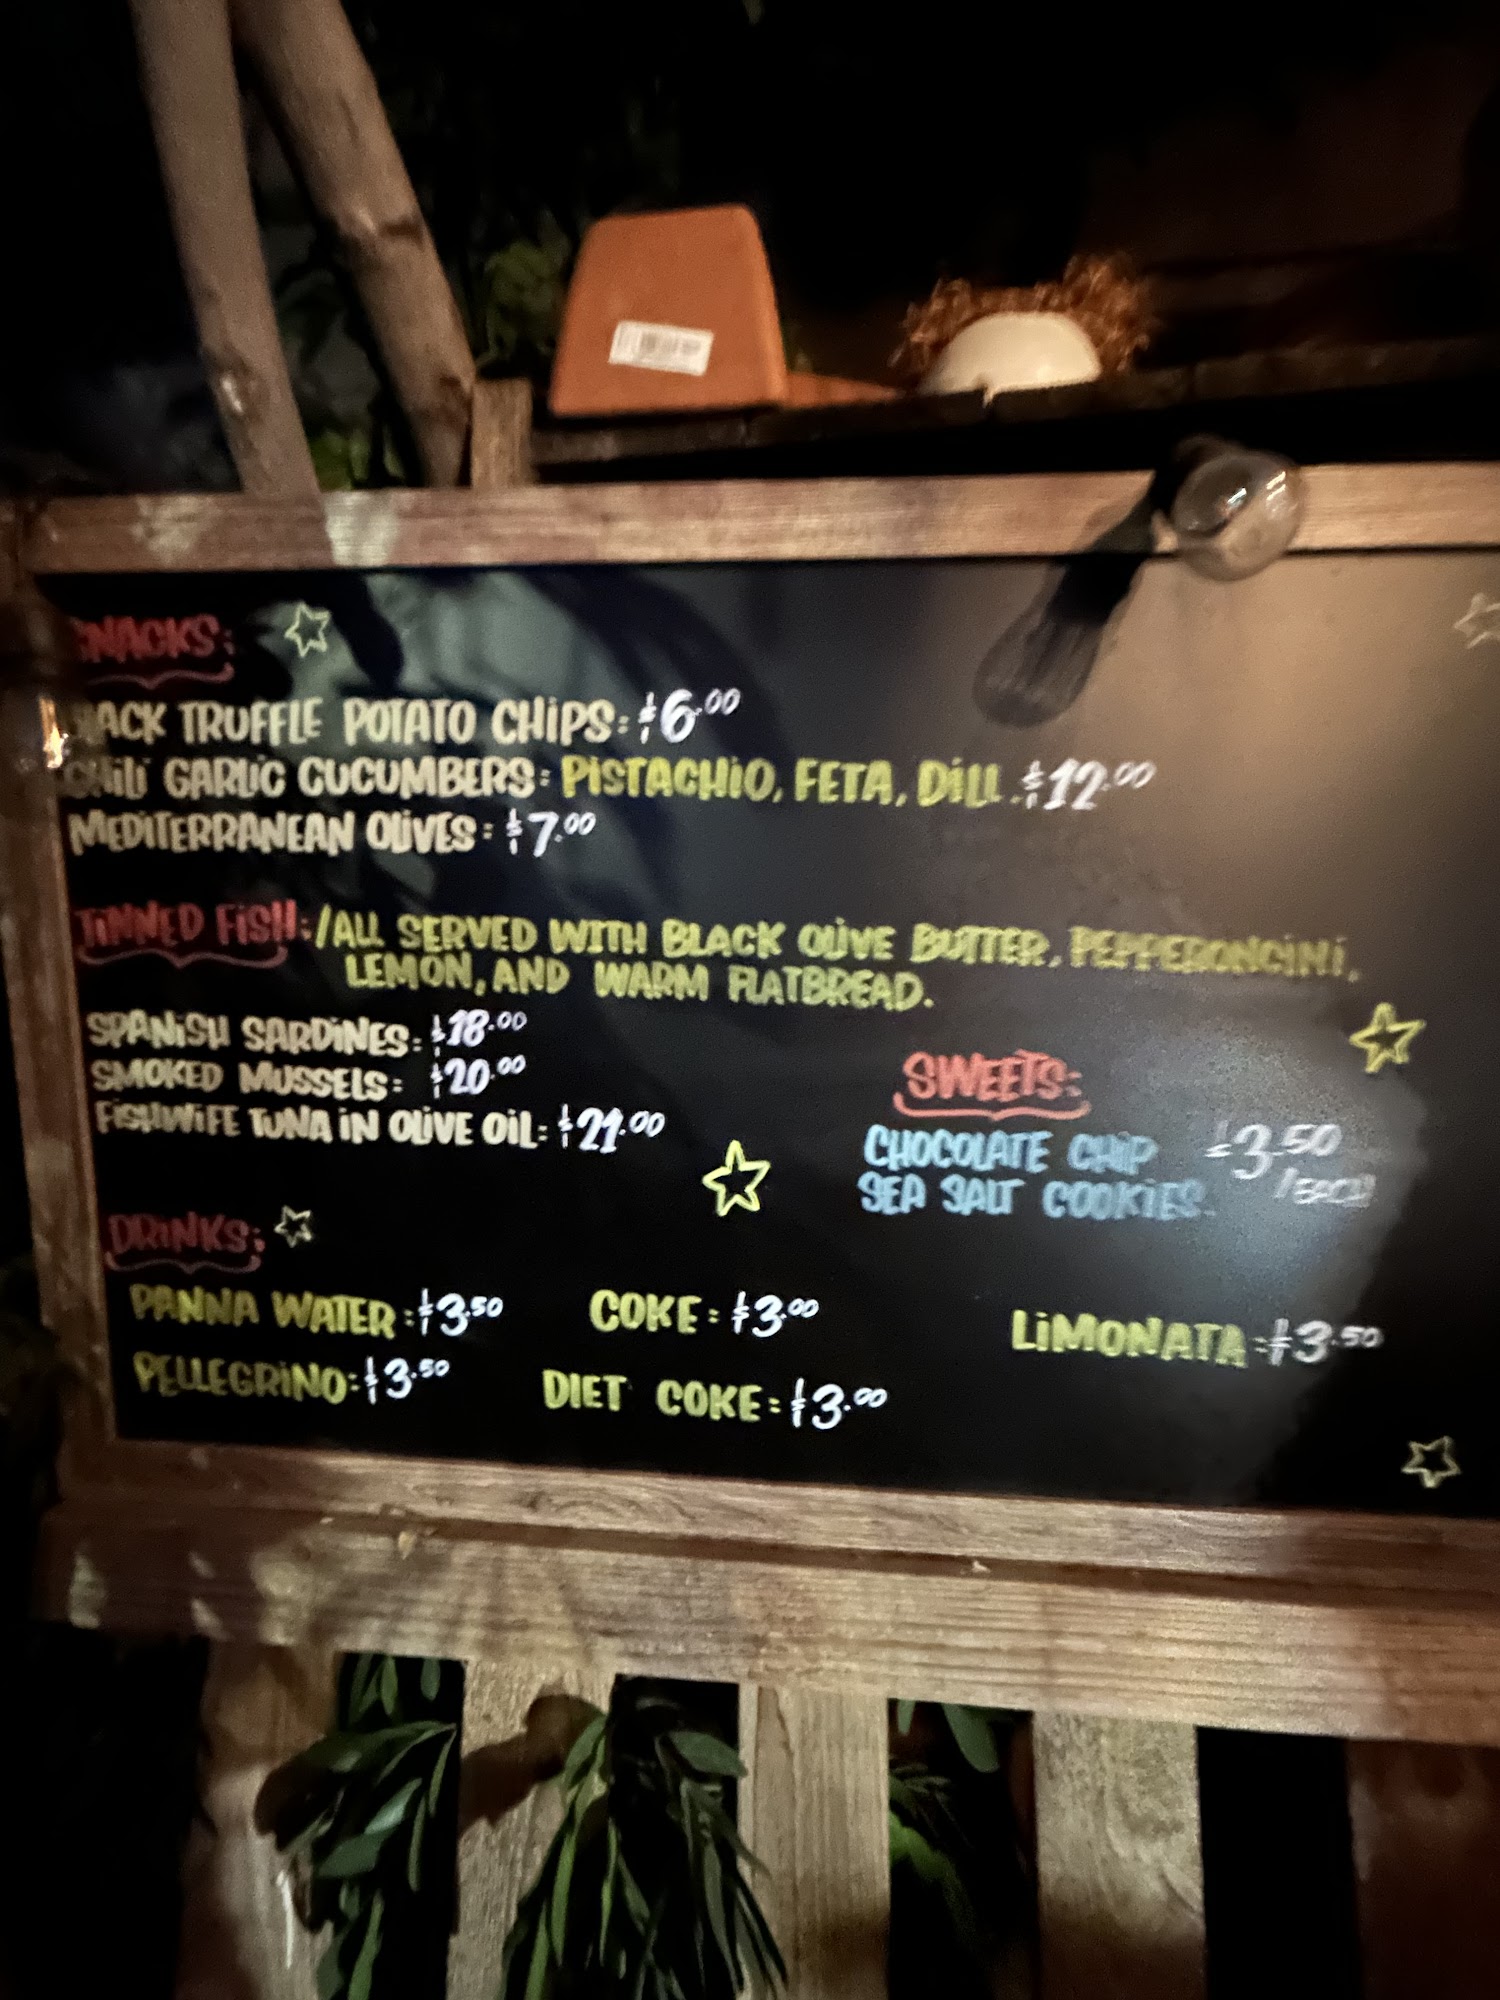 SNACKS:
BLACK TRUFFLE POTATO CHIPS: $6.00
CHILI GARLIC CUCUMBERS: PISTACHIO, FETA, DILL. $12.00
MEDITERRANEAN OLIVES: $7.00
TINNED FISH: /ALL SERVED WITH BLACK OLIVE BUTTER, PEPPERONCINI,
LEMON, AND WARM FLATBREAD.
SPANISH SARDINES: $18.00
SMOKED MUSSELS: $20.00
FISHWIFE TUNA IN OLIVE OIL: $21.00
SWEETS:
CHOCOLATE CHIP $3.50
SEA SALT COOKIES. /EACH
DRINKS:
PANNA WATER: $3.50 COKE: $3.00 LIMONATA: $3.50
PELLEGRINO: $3.50 DIET COKE: $3.00